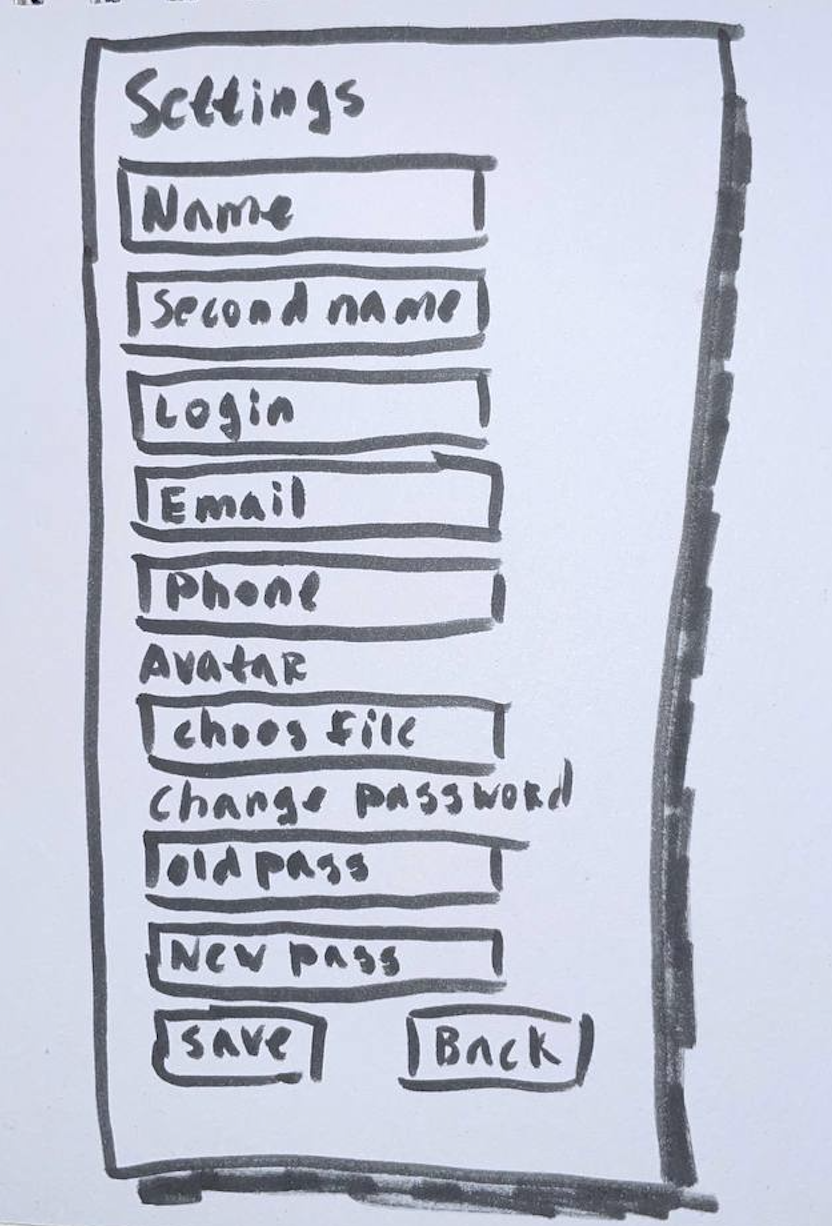 Settings
Name
Second name
Login
Email
Phone
Avatar
choos file
Change password
old pass
New pass
save
Back